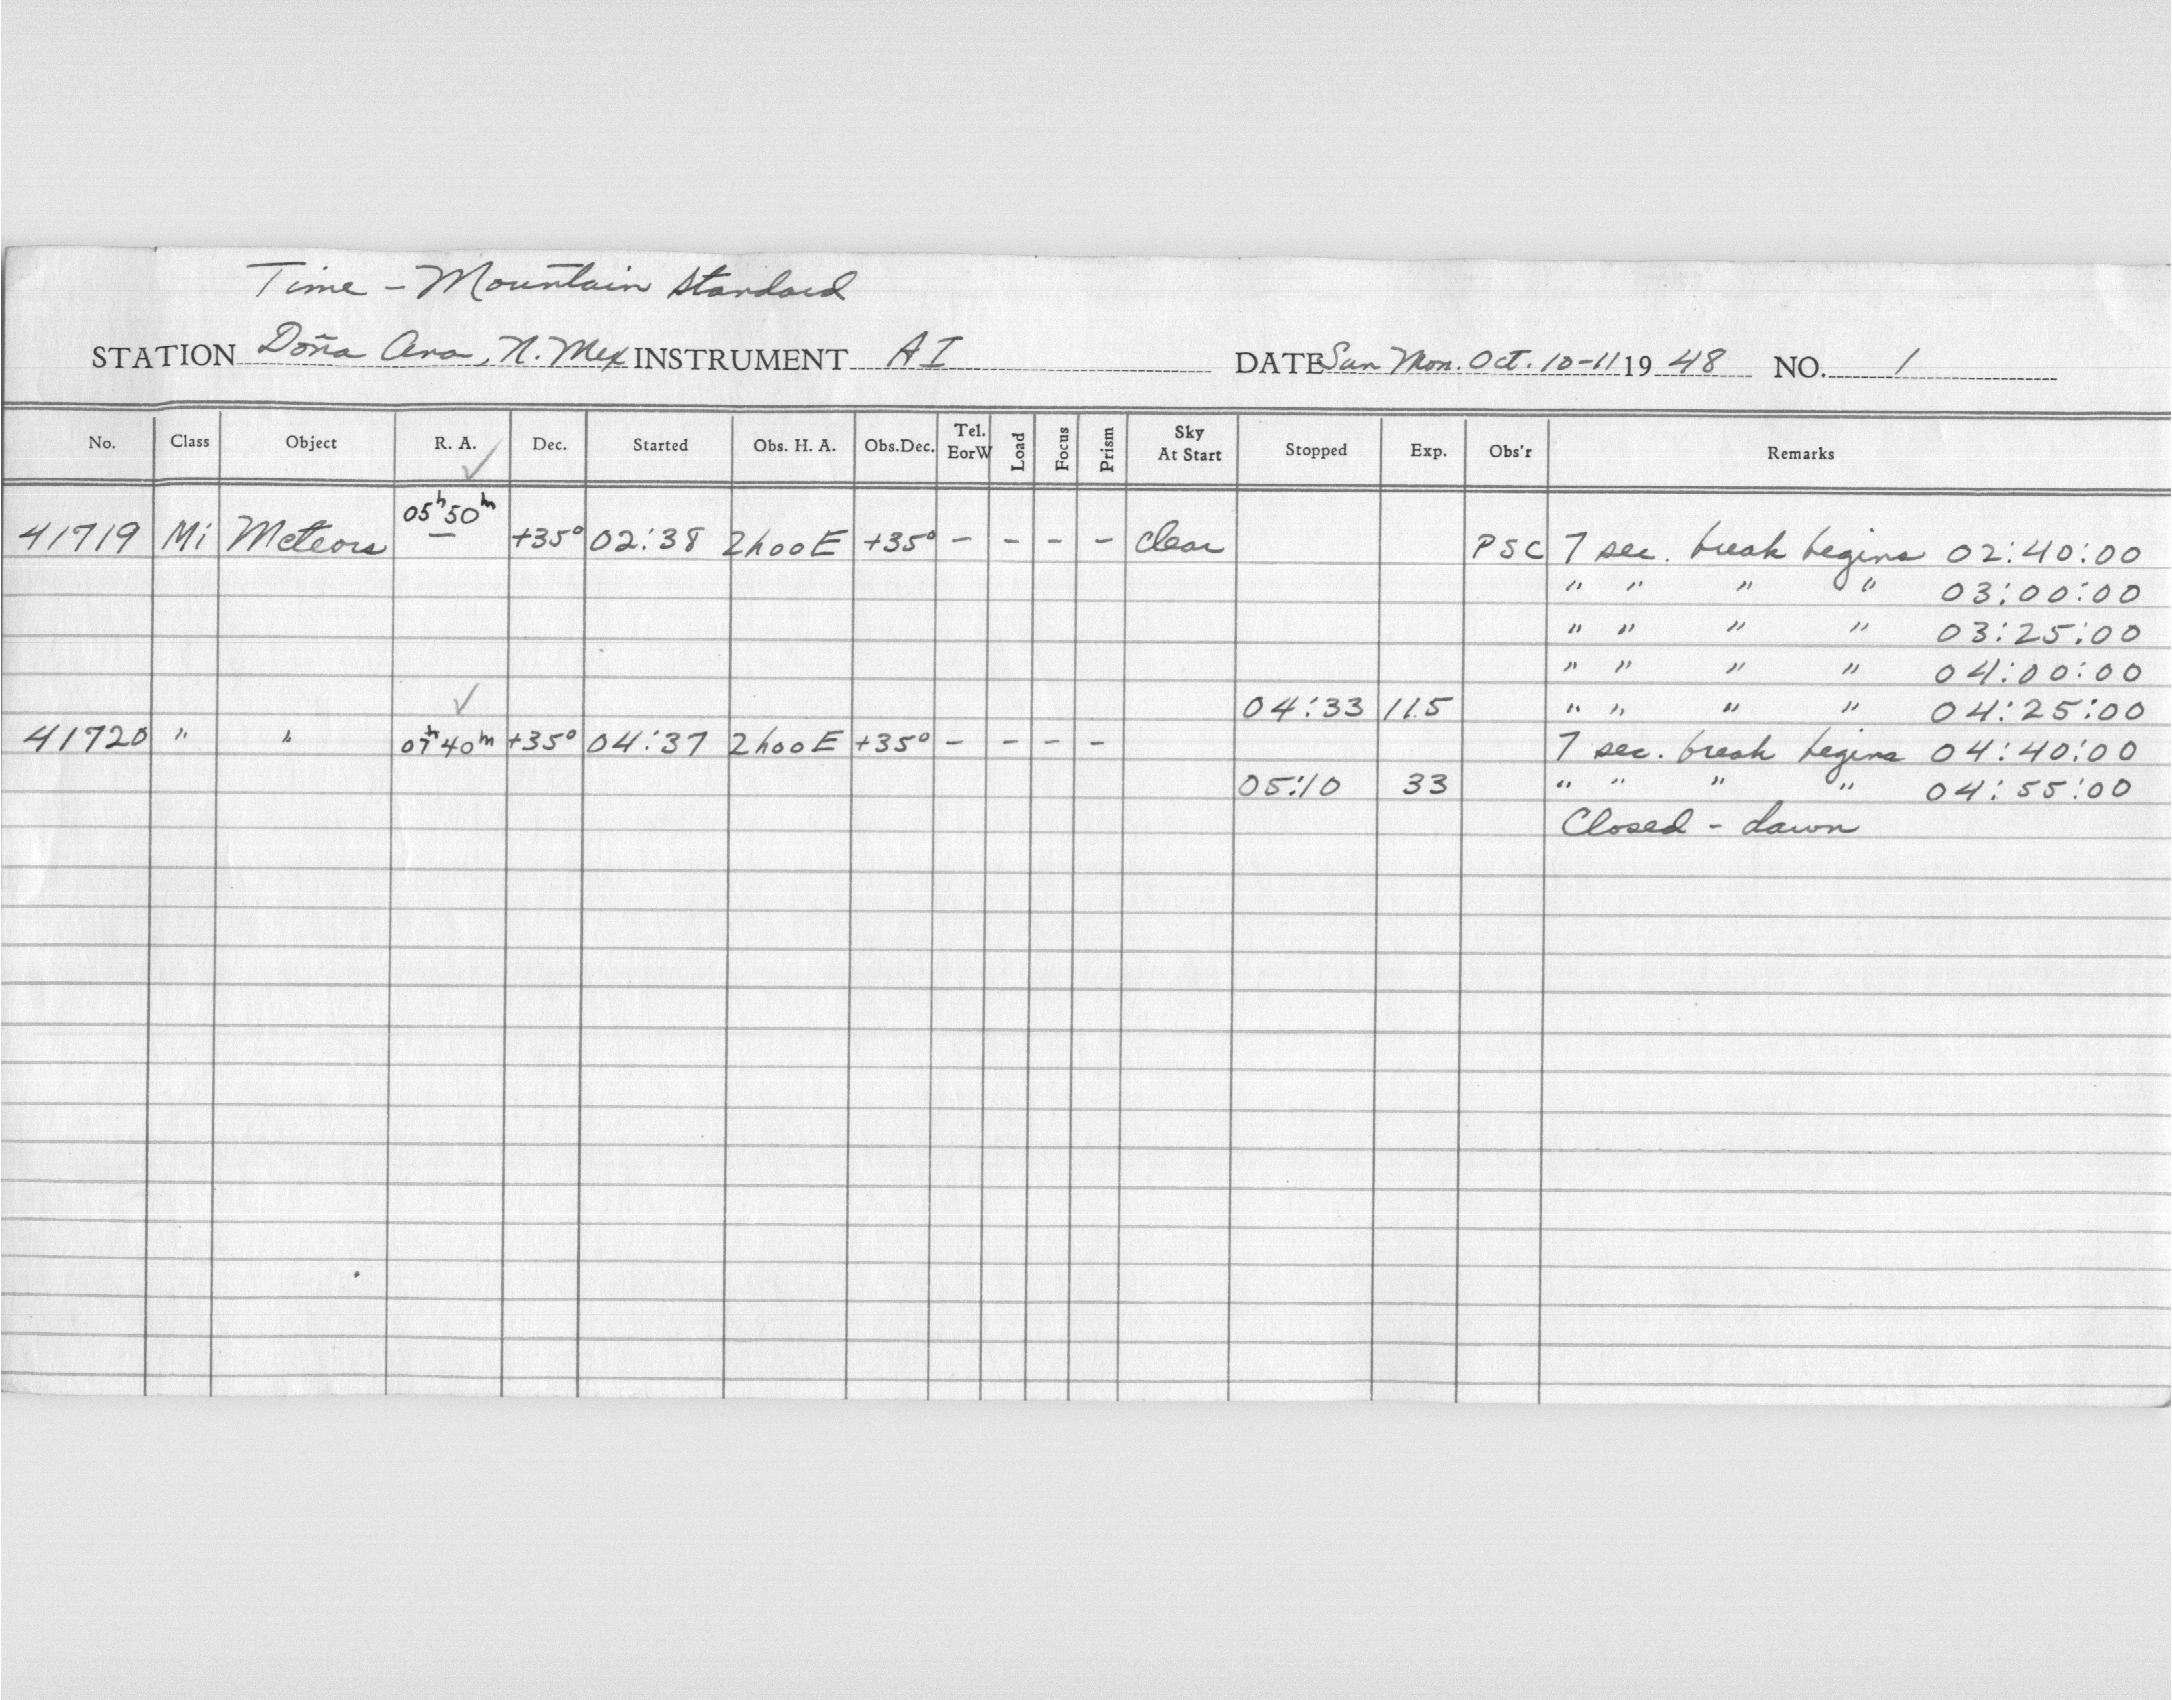 Time - Mountain Standard
STATION Doña Ana, N. Mex INSTRUMENT AI DATE Sun Mon. Oct. 10-11 19 48 NO. 1
No. Class Object R. A. Dec. Started Obs. H. A. Obs.Dec. Tel. EorW Load Focus Prism Sky At Start Stopped Exp. Obs'r Remarks
✓
05h 50m
41719 Mi Meteors — +35° 02:38 2h00E +35° - - - - clear PSC 7 sec. break begins 02:40:00
" " " " 03:00:00
" " " " 03:25:00
" " " " 04:00:00
✓ 04:33 115 " " " " 04:25:00
41720 " " 07h 40m +35° 04:37 2h00E +35° - - - - 7 sec. break begins 04:40:00
05:10 33 " " " " 04:55:00
Closed - dawn